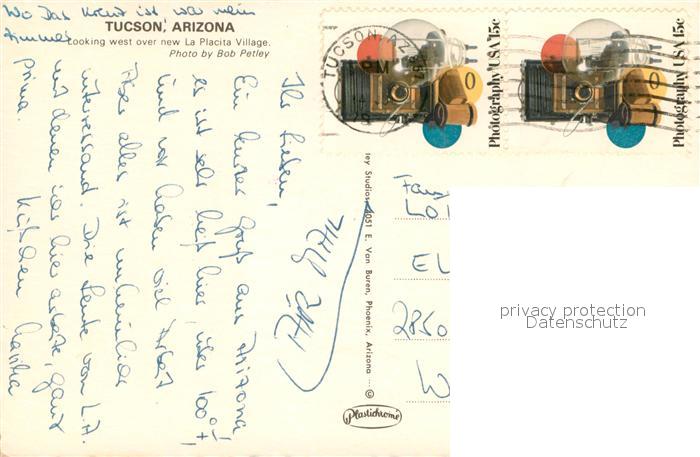 Wo Das Kreuz ist war mein
Zimmer
TUCSON, ARIZONA
Looking west over new La Placita Village.
Photo by Bob Petley
Ihr Lieben,
Ein kurzer Gruß aus Arizona
es ist sehr heiß hier, über 100°+!
und wir haben viel Arbeit
Aber alles ist unheimlich
interessant. Die Leute von L.A.
mit denen ich hier arbeite, ganz
prima.
Küßchen
PAR AVION
TUCSON, AZ
PM
Photography USA 15c
Photography USA 15c
ley Studios, 4051 E. Van Buren, Phoenix, Arizona
©
Plastichrome
Fam
LO
EL
2850
W
privacy protection
Datenschutz